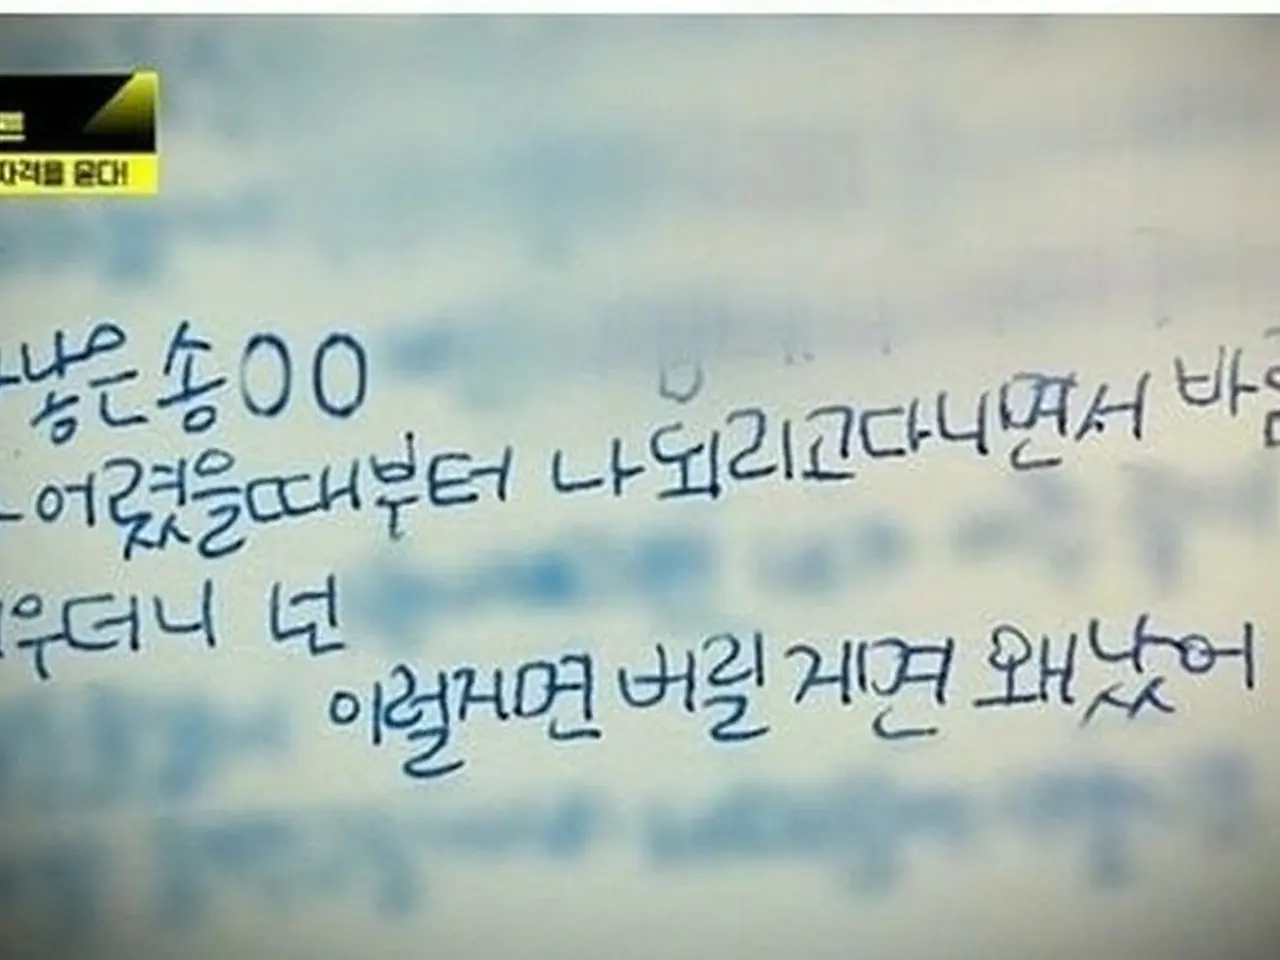 트
자격을 묻다!
낳은 송OO
어렸을때부터 나 뙤리고다니면서 바
우더니 넌
이럴게면 버릴 게면 왜 났어